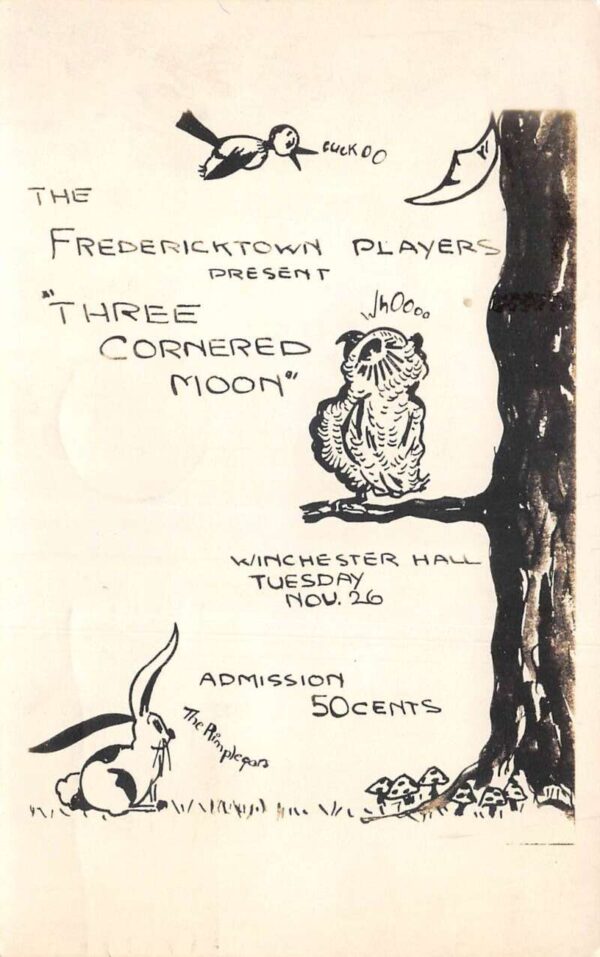 cuckoo
THE
FREDERICKTOWN PLAYERS
PRESENT
"THREE
CORNERED
MOON"
Whoooo
WINCHESTER HALL
TUESDAY
NOV. 26
ADMISSION
50 CENTS
The Rimplegars